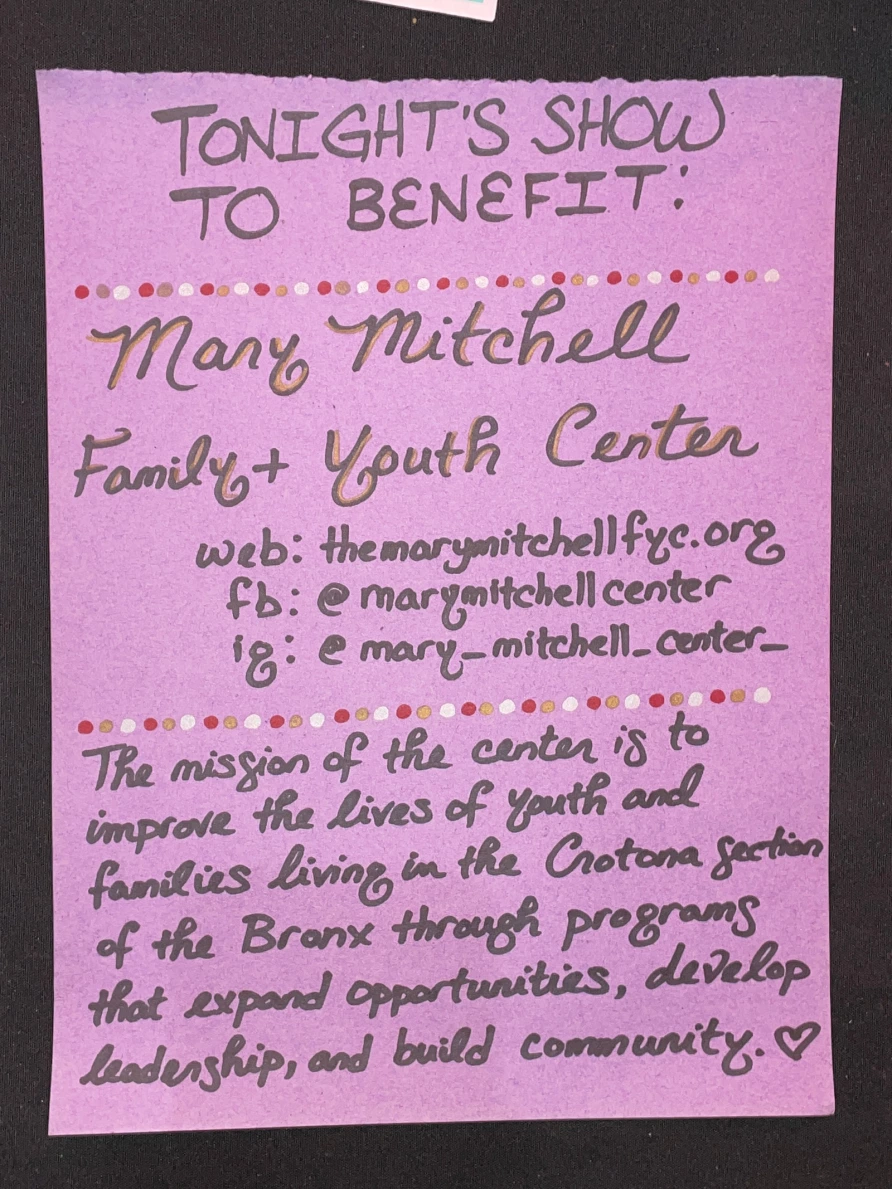 TONIGHT'S SHOW
TO BENEFIT:
Mary Mitchell
Family + Youth Center
web: themarymitchellfyc.org
fb: @marymitchellcenter
ig: @mary_mitchell_center_
The mission of the center is to
improve the lives of youth and
families living in the Crotona section
of the Bronx through programs
that expand opportunities, develop
leadership, and build community. ♡